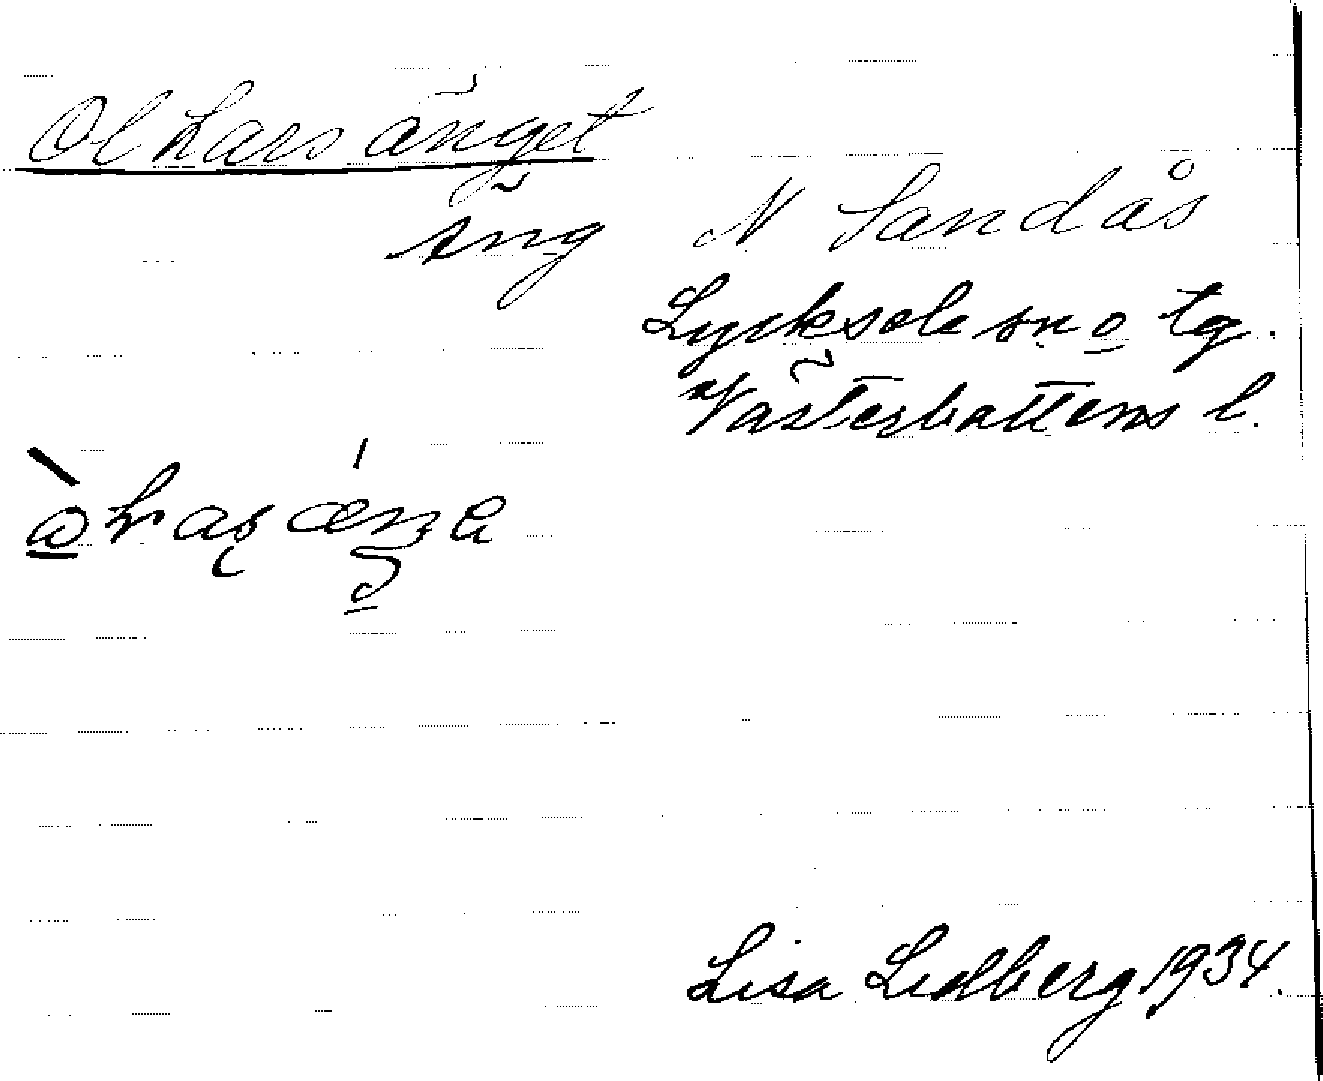 Ol Lars änget
äng N Sandås
Lycksele sn o tg.
Västerbottens l.
Lisa Lidberg 1934.